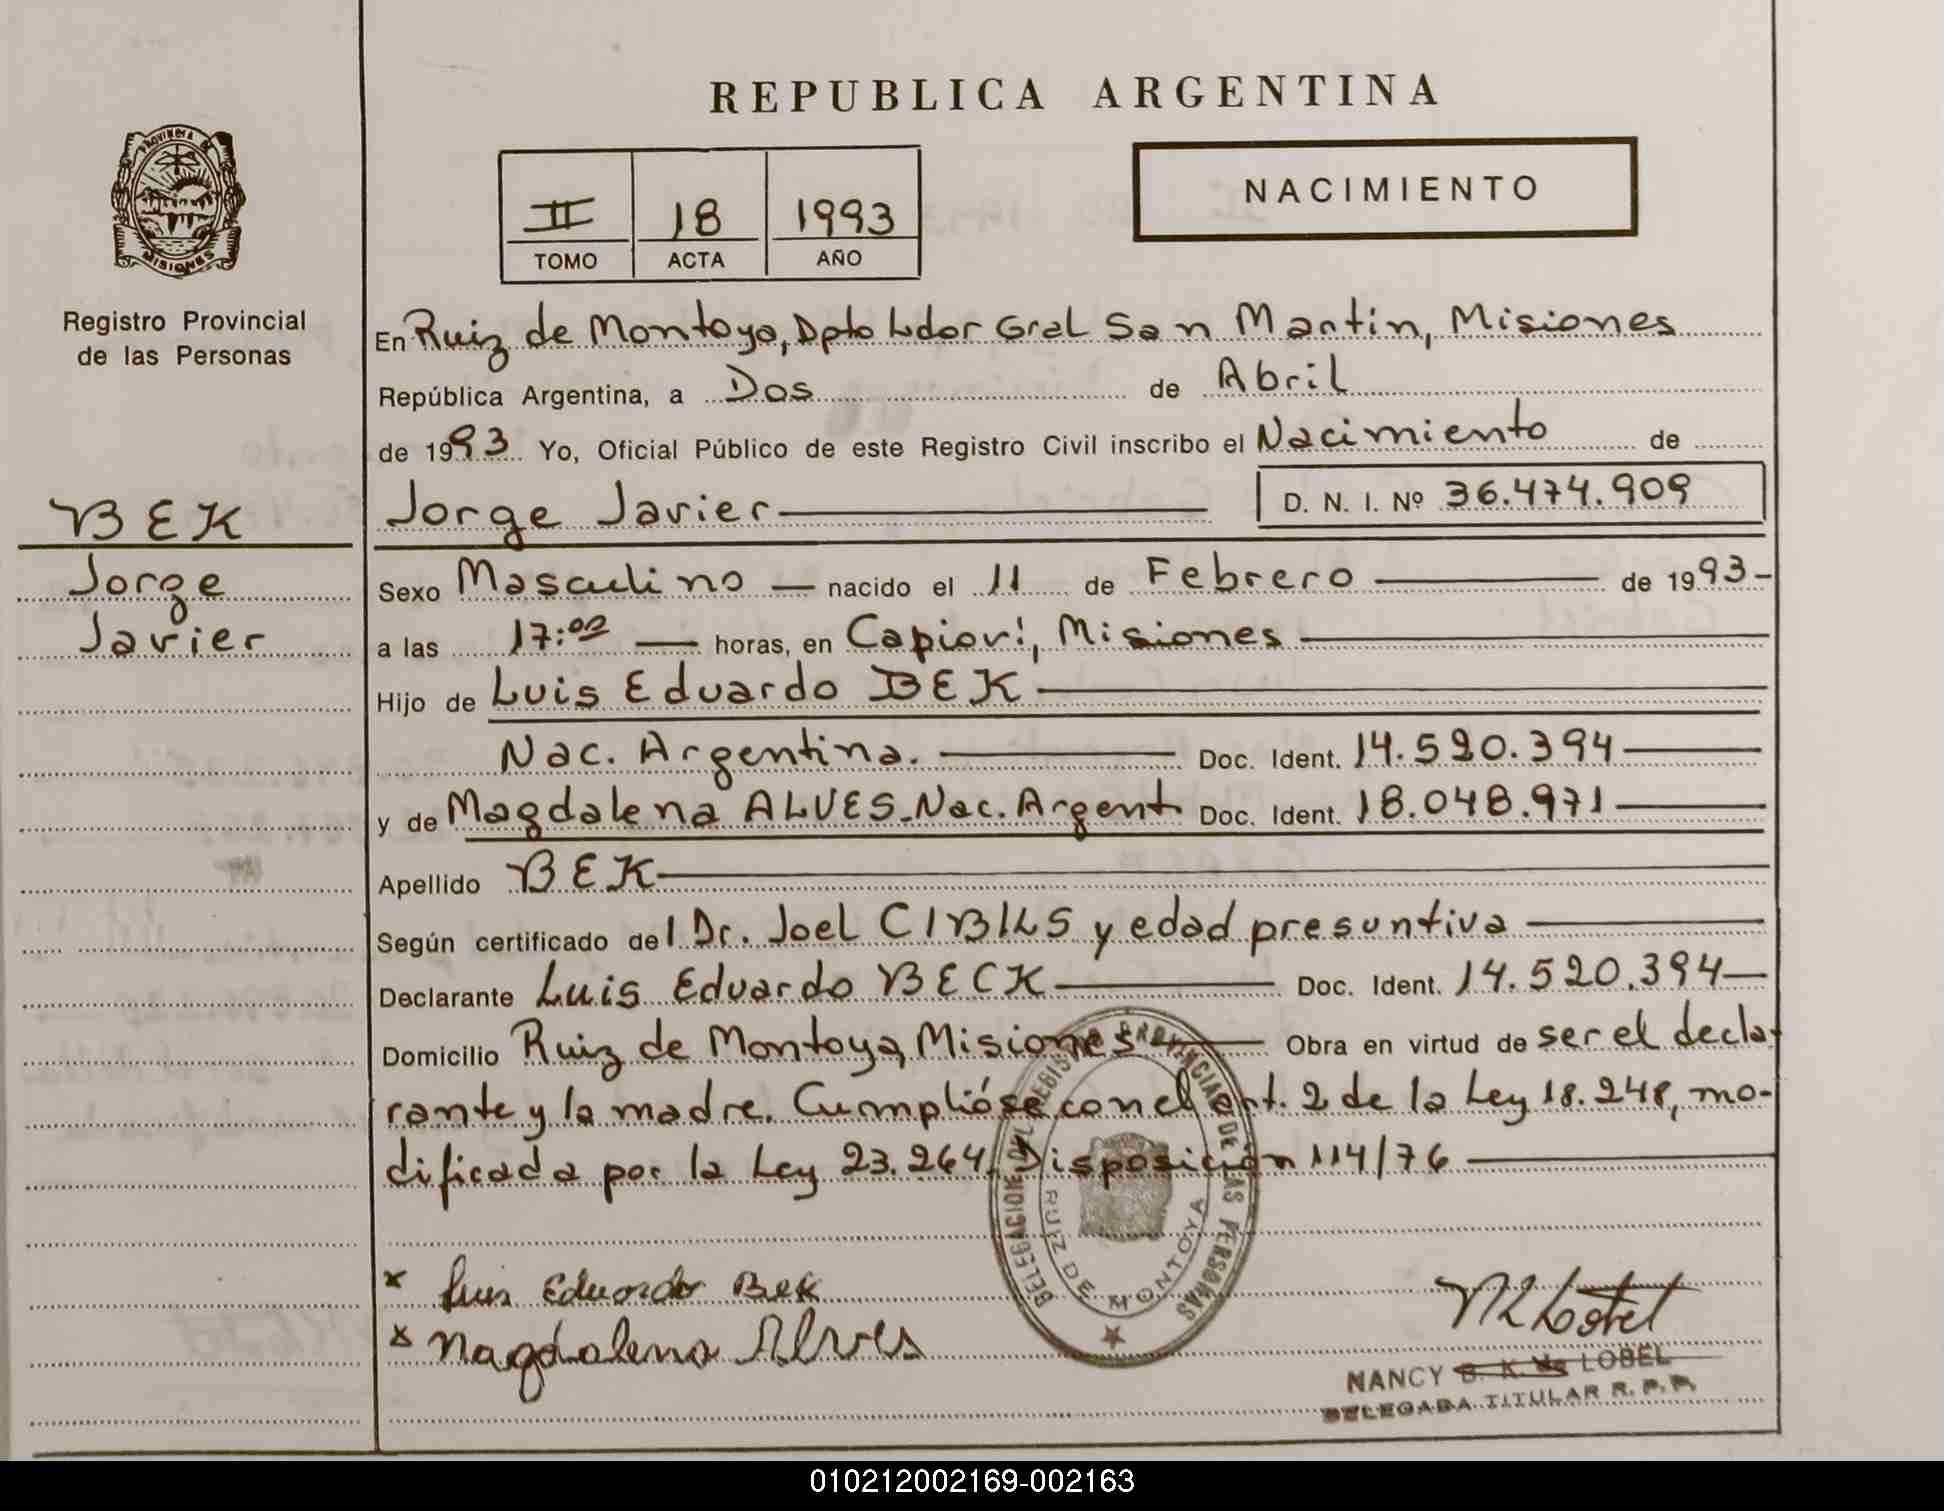 REPUBLICA ARGENTINA
PROVINCIA DE MISIONES
Registro Provincial
de las Personas
II 18 1993
TOMO ACTA AÑO
NACIMIENTO
En Ruiz de Montoya, Dpto Ldor Gral San Martin, Misiones
República Argentina, a Dos de Abril
de 1993 Yo, Oficial Público de este Registro Civil inscribo el Nacimiento de
BEK
Jorge
Javier
Jorge Javier D. N. I. Nº 36.474.909
Sexo Masculino nacido el 11 de Febrero de 1993
a las 17:00 horas, en Capioví, Misiones
Hijo de Luis Eduardo BEK
Nac. Argentina. Doc. Ident. 14.520.394
y de Magdalena ALVES. Nac. Argent Doc. Ident. 18.048.971
Apellido BEK
Según certificado del Dr. Joel CIBILS y edad presuntiva
Declarante Luis Eduardo BECK Doc. Ident. 14.520.394
Domicilio Ruiz de Montoya, Misiones Obra en virtud de ser el decla-
rante y la madre. Cumplióse con el art. 2 de la Ley 18.248, mo-
dificada por la Ley 23.264. Disposición 114/76
DELEGACION DEL REGISTRO PROVINCIAL DE LAS PERSONAS
RUIZ DE MONTOYA
x Luis Eduardo Bek
x Magdalena Alves
NANCY LOBEL
DELEGADA TITULAR R. P. P.
010212002169-002163